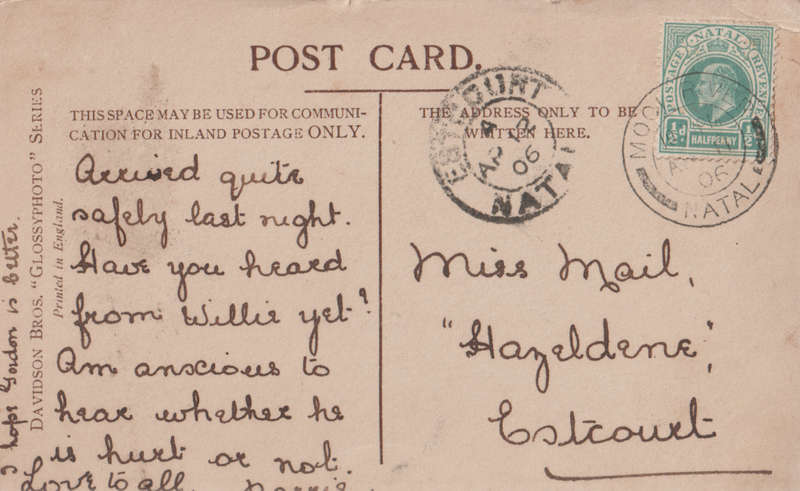 POST CARD.
THIS SPACE MAY BE USED FOR COMMUNI-
CATION FOR INLAND POSTAGE ONLY.
THE ADDRESS ONLY TO BE
WRITTEN HERE.
DAVIDSON BROS. "GLOSSYPHOTO" SERIES
Printed in England.
Arrived quite
safely last night.
Have you heard
from Willie yet?
Am anscious to
hear whether he
is hurt or not.
Love to all.
I hope Gordon is better.
Miss Mail,
"Hazeldene",
Estcourt
ESTCOURT
AP
06
NATAL
NATAL
POSTAGE
REVENUE
½d
HALFPENNY
½
MOO
A
06
NATAL